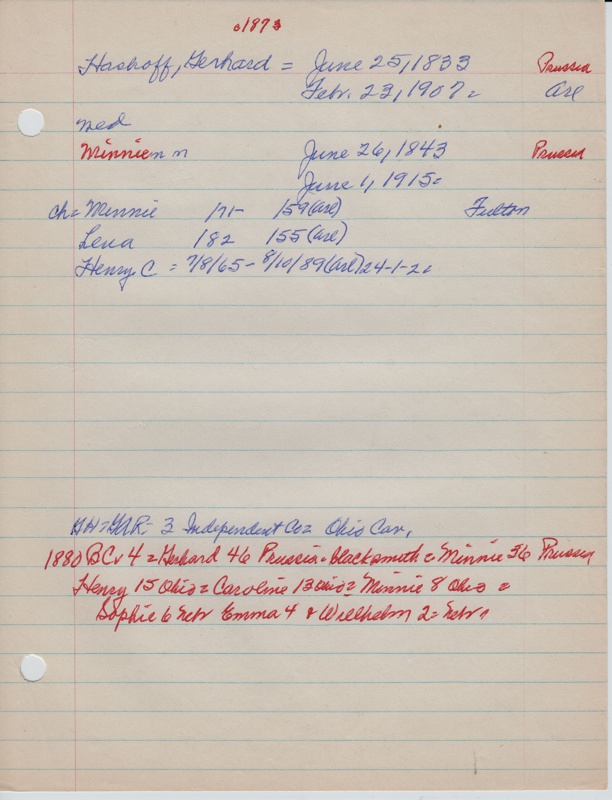 c1873
Haskoff, Gerhard = June 25, 1833 Prussia
Febr. 23, 1907 = Arl
med
Minnie n n June 26, 1843 Prussia
June 1, 1915 =
ch = Minnie /71- /59 (Arl) Fulton
Lena /82 155 (Arl)
Henry C = 7/8/65 - 8/10/89 (Arl) 24-1-2 =
GH = GAR - 3 Independent Co = Ohio Cav,
1880 BC v 4 = Gerhard 46 Prussia = blacksmith = Minnie 36 Prussia
Henry 15 Ohio = Caroline 13 Ohio = Minnie 8 Ohio =
Sophie 6 Nebr Emma 4 & Wilhelm 2 = Nebr